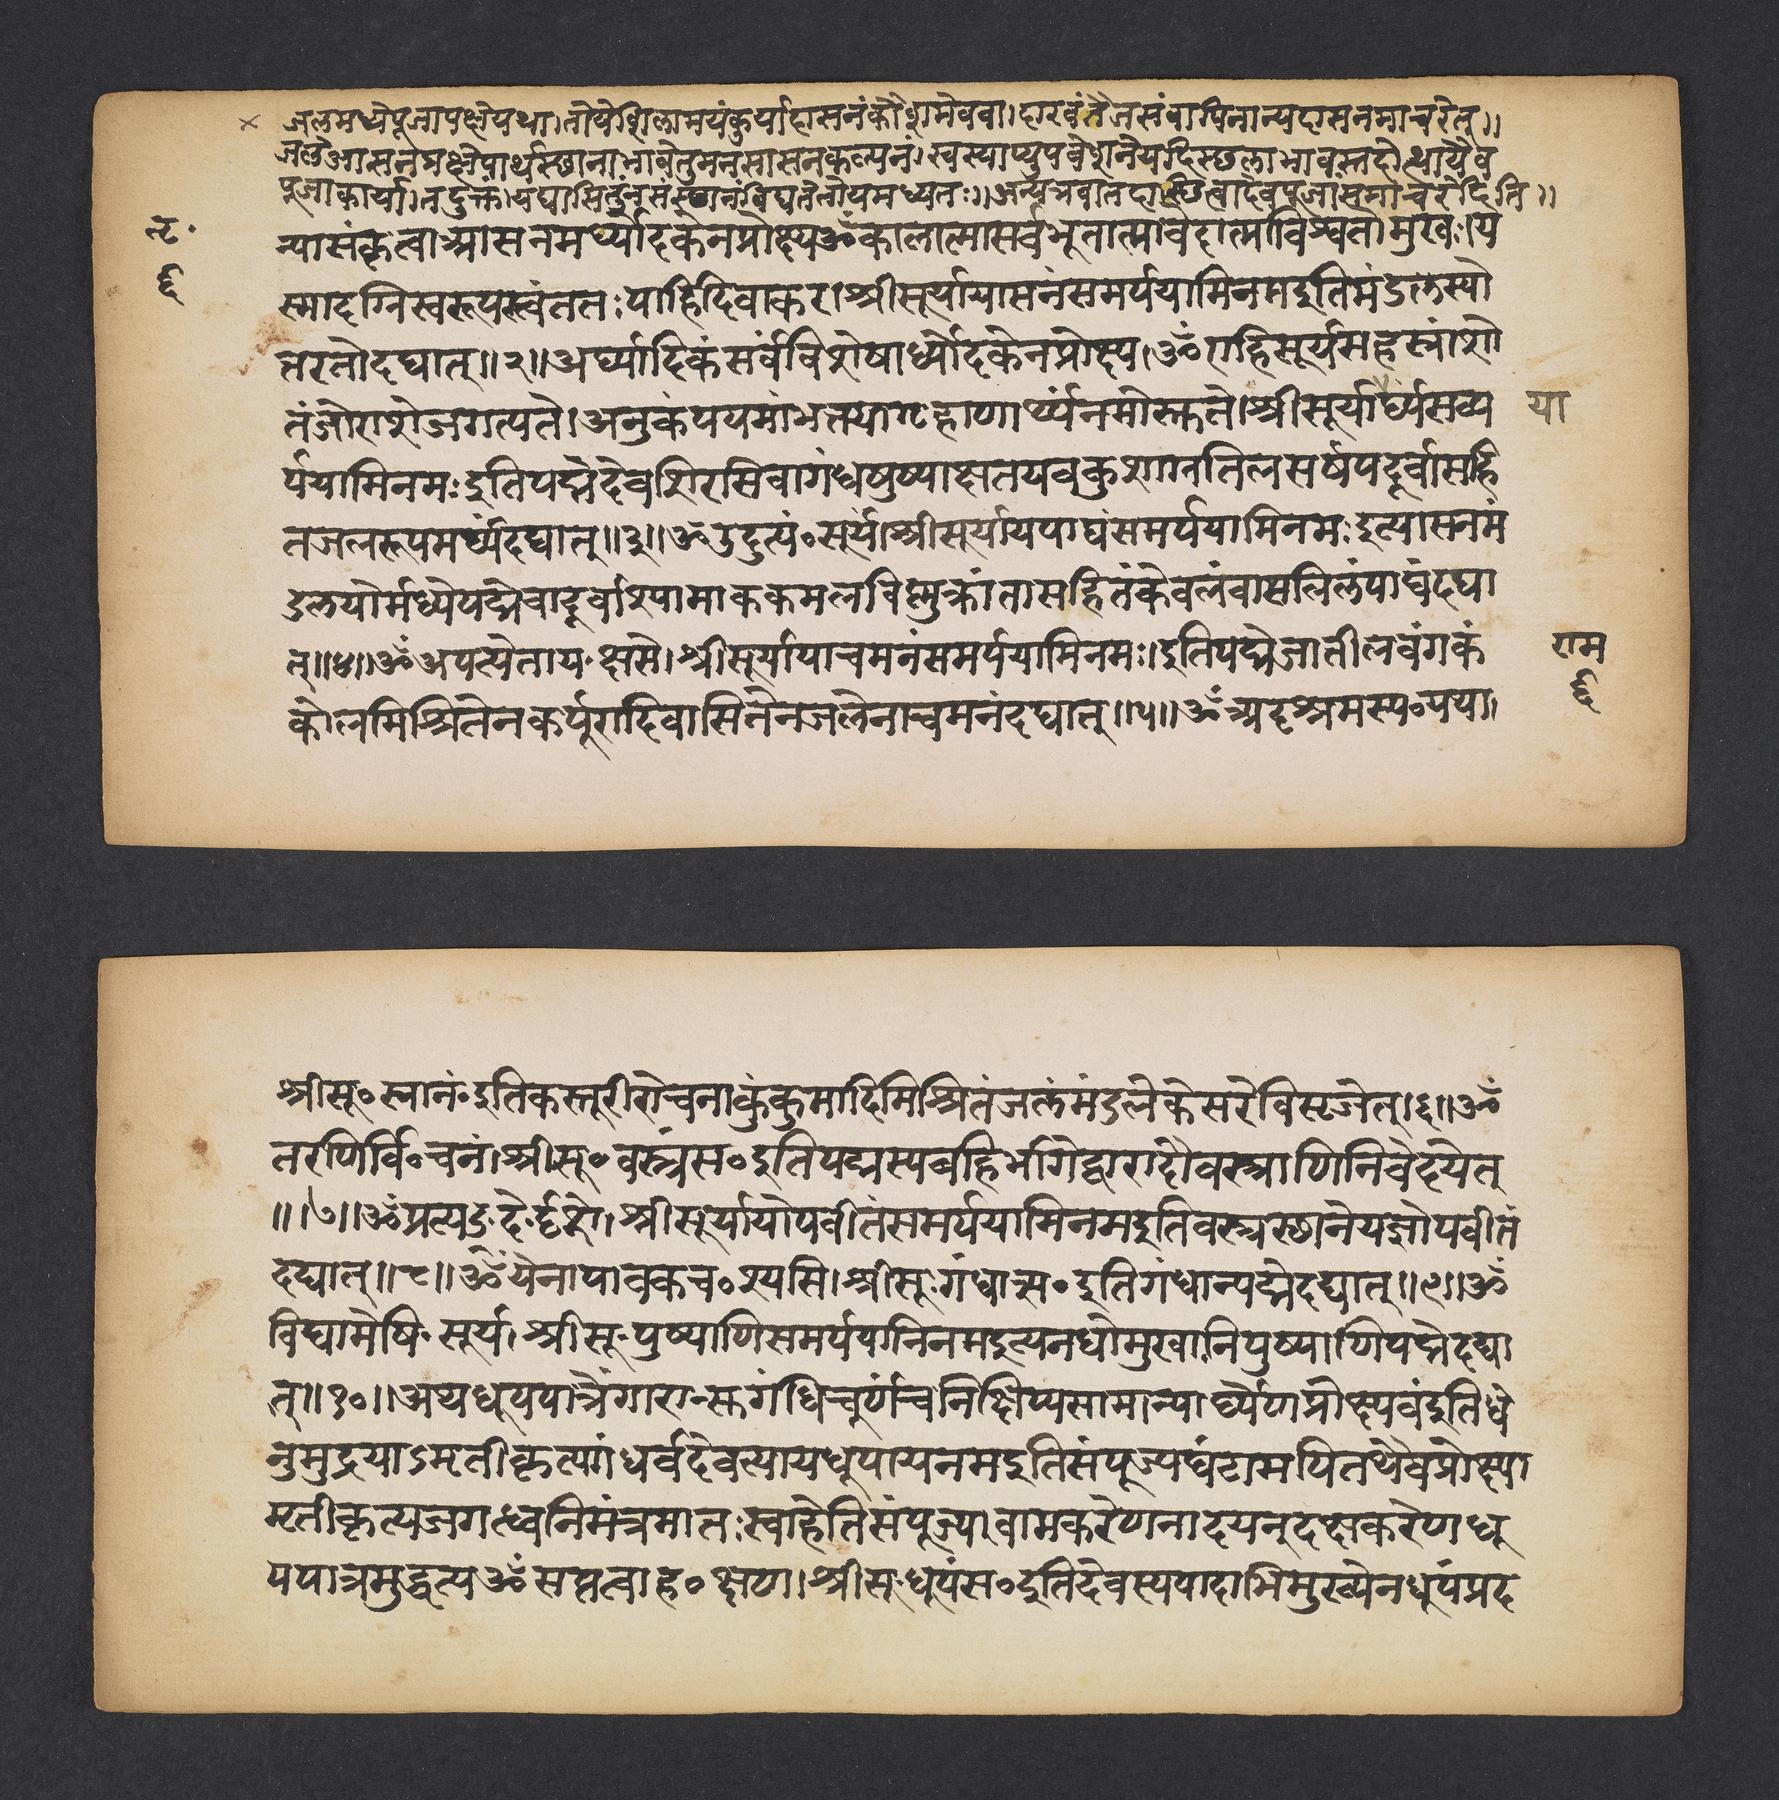 जलमध्येपूजापक्षेयथा।तोयेशिलामयंकुर्याद्दासनंकौशमेववा।दारवंतैजसंवापिनान्यदासनमाचरेत्।।
जलेआसनप्रक्षेपार्थस्थानाभावेतुमनसासनकल्पनं।स्वस्याप्युपवेशनेयदिस्छलाभावस्तदोत्थायैव
पूजाकार्या।तदुक्तं।यद्यासितुंनसंस्छानंविद्यतेतोयमध्यतः।।अन्यत्रवातदास्छित्वादेवपूजांसमाचरेदिति।।
न्यासंकृत्वाआसनमर्घ्योदकेनप्रोक्ष्यॐकालात्मासर्वभूतात्मावेदात्माविश्वतोमुखः।य
स्मादग्निस्वरूपस्त्वंततःपाहिदिवाकर।श्रीसूर्यायासनंसमर्पयामिनमइतिमंडलस्यो
त्तरतोदद्यात्॥२॥अर्घ्यादिकंसर्वंविशेषार्घ्योदकेनप्रोक्ष्य।ॐएहिसूर्यसहस्रांशो
तेजोराशेजगत्पते।अनुकंपयमांभक्त्यागृहाणार्घ्यंनमोस्तुते।श्रीसूर्यार्घ्यंसव्य
या
र्पयामिनमःइतिपद्मेदेवशिरसिवागंधपुष्पाक्षतयवकुशाग्रतिलसर्षपदूर्वासहि
तजलरूपमर्घ्यंदद्यात्॥३॥ॐउदुत्यं०सूर्यं।श्रीसूर्यायपाद्यंसमर्पयामिनमःइत्यासनमं
डलयोर्मध्येपद्मेवादूर्वाश्यामाककमलविष्णुक्रांतासहितंकेवलंवासलिलंपाद्यंदद्या
त्॥४॥ॐअपत्येताय॰क्षसे।श्रीसूर्यायाचमनंसमर्पयामिनमः।इतिपद्मेजातीलवंगकं
राम
६
कोलमिश्रितेनकर्पूरादिवासितेनजलेनाचमनंदद्यात्॥५॥ॐअदृश्रमस्य०यया।
श्रीसू०स्नानं॰इतिकस्तूरीरोचनाकुंकुमादिमिश्रितंजलंमंडलेकेसरेविसृजेत्।६॥ॐ
तरणिर्वि०चनं।श्रीसू०वस्त्रंस०इतिपद्मस्यबहिर्भागेद्वारादौवस्त्राणिनिवेदयेत्
॥७॥ॐप्रत्यङ्॰दे॰र्दृशे।श्रीसूर्यायोपवीतंसमर्पयामिनमइतिवस्त्रस्छानेयज्ञोपवीतं
दद्यात्॥८॥ॐयेनापावकच०श्यसि।श्रीसू॰गंधास॰इतिगंधान्पद्मेदद्यात्॥९॥ॐ
विद्यामेषि॰सूर्य।श्रीसू॰पुष्पाणिसमर्पयानिनमइत्यनधोमुखानिपुष्पाणिपद्मेदद्या
त्॥१०॥अथधूपपात्रेंगारान्स्तगंधिचूर्णंचनिक्षिप्यसामान्यार्घ्येणप्रोक्ष्यवंइतिधे
नुमुद्रयाऽमृतीकृत्यगांधर्वदेवत्यायधूपायनमइतिसंपूज्यघंटामपितथैवप्रोक्ष्या
मृतीकृत्यजगत्ध्वनिमंत्रमातःस्वाहेतिसंपूज्य।वामकरेणनादयन्दक्षकरेणधू
पपात्रमुद्धृत्यॐसप्तत्वाह०क्षण।श्रीसू॰धूपंस०इतिदेवस्यपादाभिमुख्येनधूपंप्रद